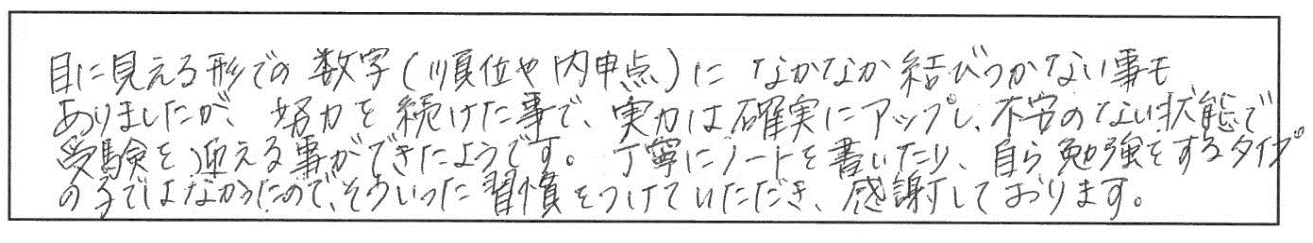 目に見える形での数字(順位や内申点)になかなか結びつかない事も
ありましたが、努力を続けた事で、実力は確実にアップし、不安のない状態で
受験を迎える事ができたようです。丁寧にノートを書いたり、自ら勉強をするタイプ
の子ではなかったので、そういった習慣をつけていただき、感謝しております。